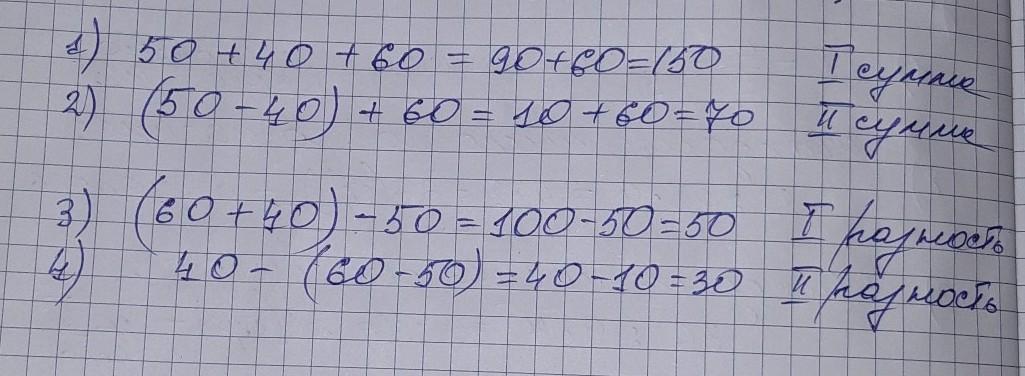 1) 50 + 40 + 60 = 90 + 60 = 150 I сумма
2) (50 - 40) + 60 = 10 + 60 = 70 II сумма
3) (60 + 40) - 50 = 100 - 50 = 50 I разность
4) 40 - (60 - 50) = 40 - 10 = 30 II разность